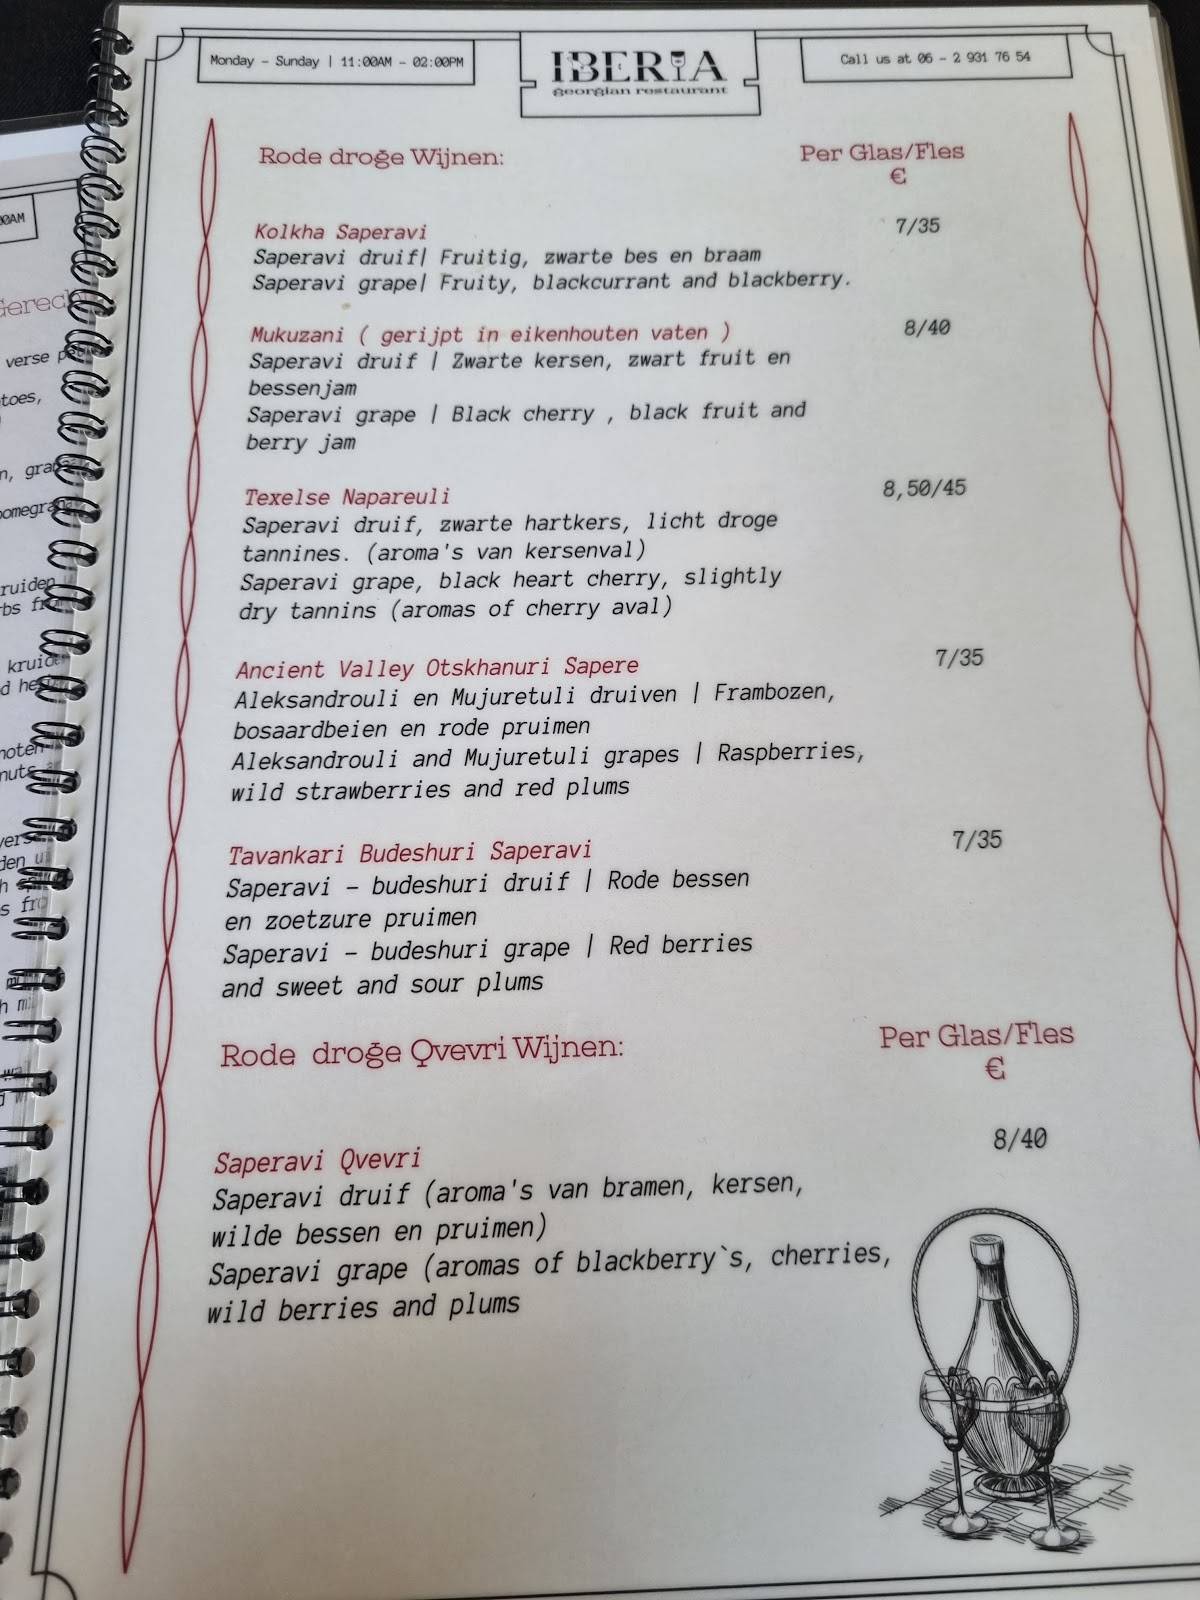 Monday – Sunday | 11:00AM – 02:00PM
IBERIA
georgian restaurant
Call us at 06 – 2 931 76 54
Rode droğe Wijnen:
Per Glas/Fles
€
Kolkha Saperavi
7/35
Saperavi druif| Fruitig, zwarte bes en braam
Saperavi grape| Fruity, blackcurrant and blackberry.
Mukuzani ( gerijpt in eikenhouten vaten )
8/40
Saperavi druif | Zwarte kersen, zwart fruit en
bessenjam
Saperavi grape | Black cherry , black fruit and
berry jam
Texelse Napareuli
8,50/45
Saperavi druif, zwarte hartkers, licht droge
tannines. (aroma's van kersenval)
Saperavi grape, black heart cherry, slightly
dry tannins (aromas of cherry aval)
Ancient Valley Otskhanuri Sapere
7/35
Aleksandrouli en Mujuretuli druiven | Frambozen,
bosaardbeien en rode pruimen
Aleksandrouli and Mujuretuli grapes | Raspberries,
wild strawberries and red plums
Tavankari Budeshuri Saperavi
7/35
Saperavi – budeshuri druif | Rode bessen
en zoetzure pruimen
Saperavi – budeshuri grape | Red berries
and sweet and sour plums
Rode droğe Qvevri Wijnen:
Per Glas/Fles
€
Saperavi Qvevri
8/40
Saperavi druif (aroma's van bramen, kersen,
wilde bessen en pruimen)
Saperavi grape (aromas of blackberry`s, cherries,
wild berries and plums